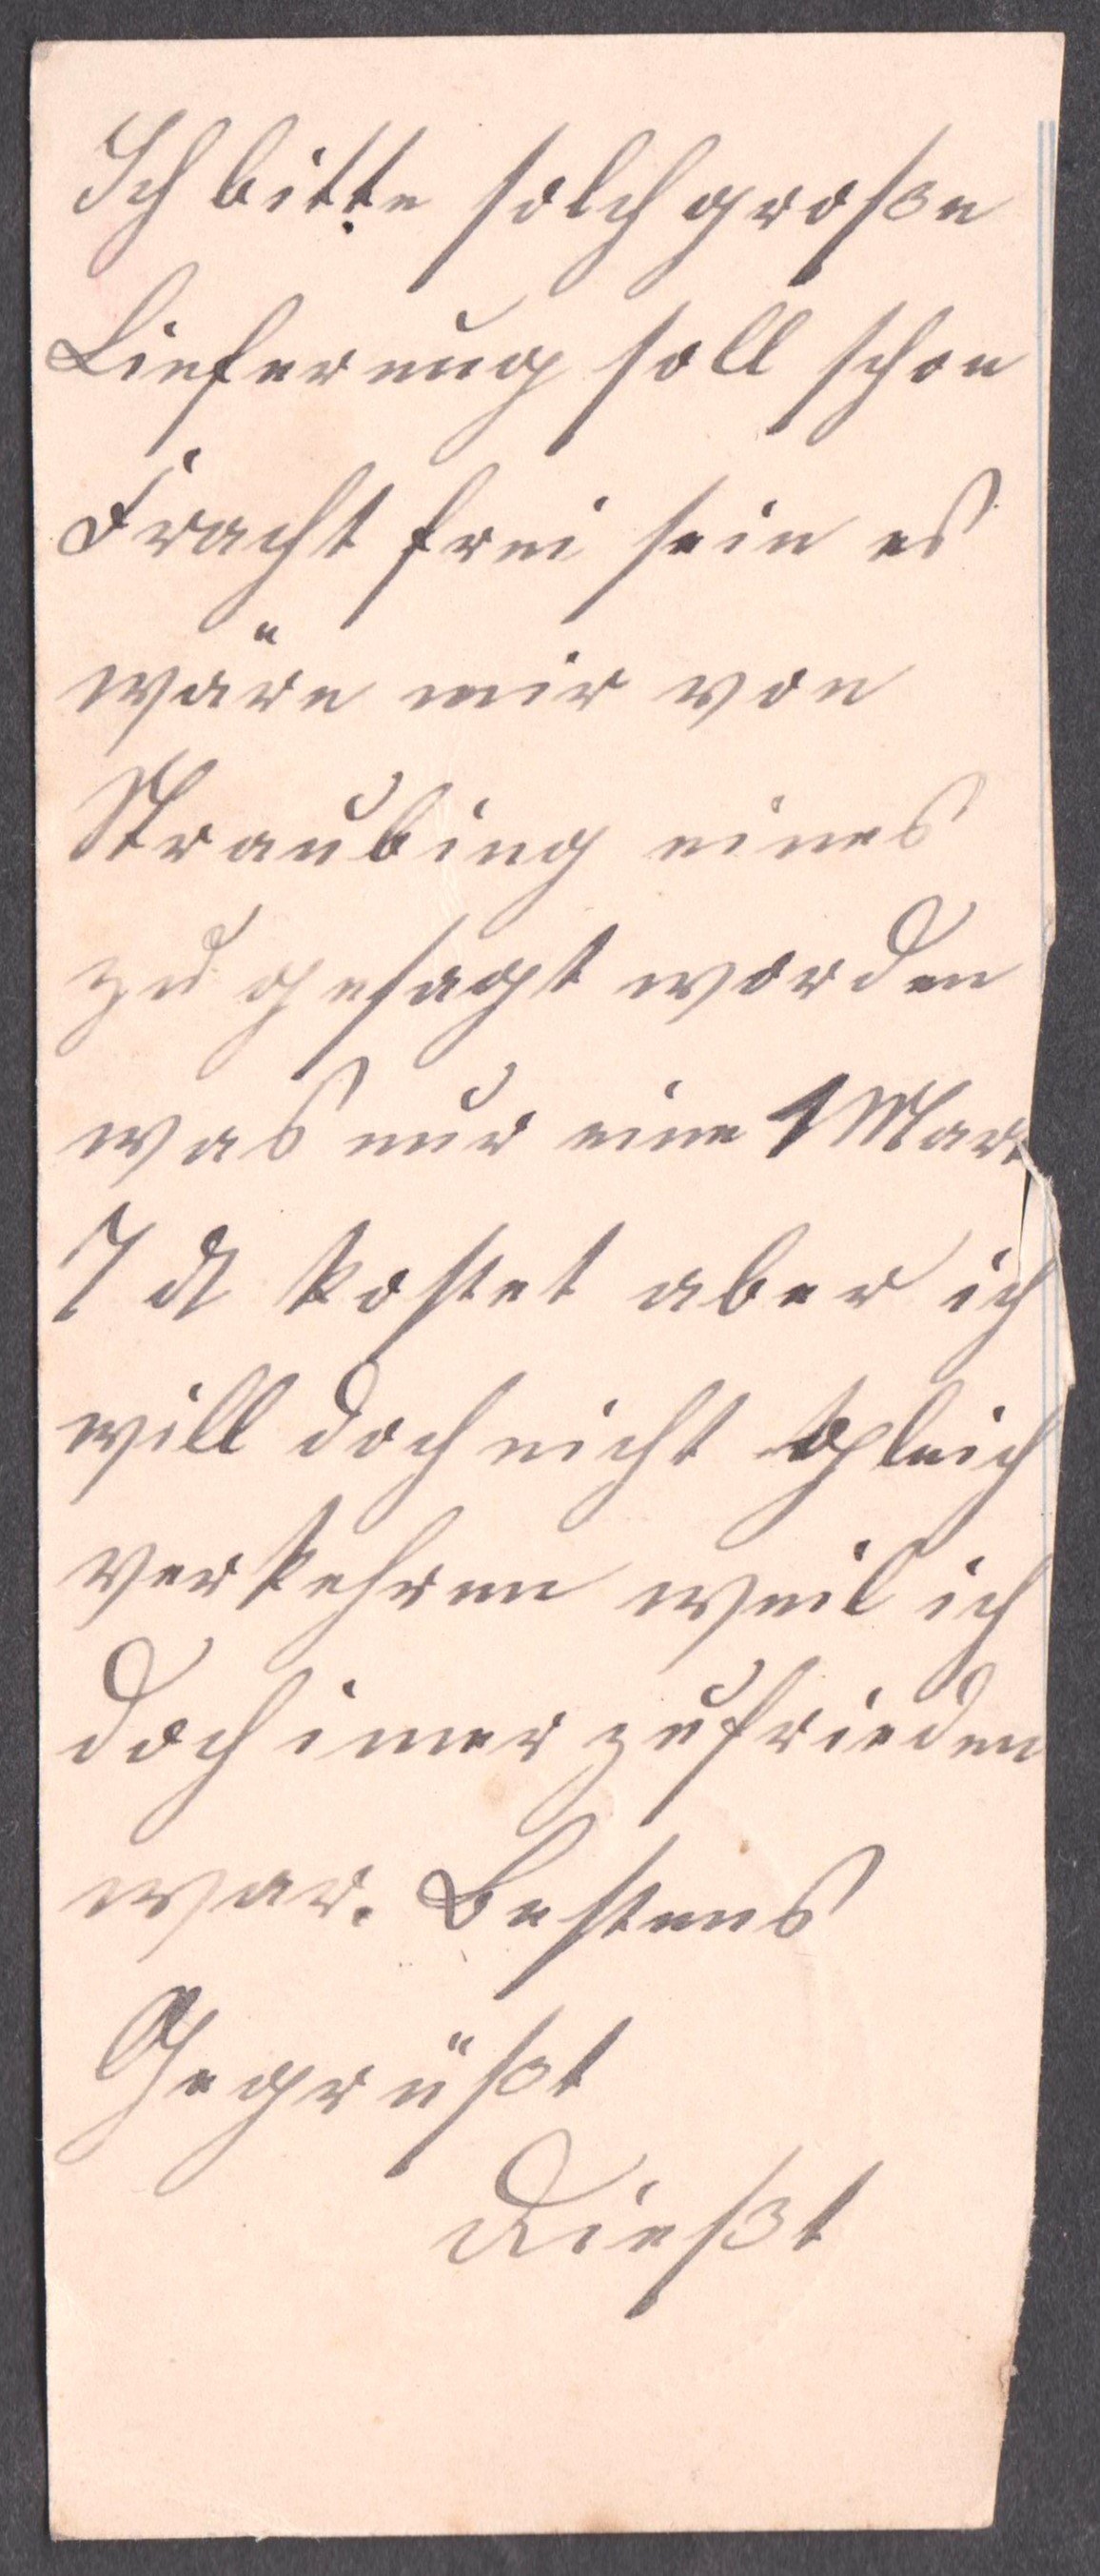 Ich bitte solch große
Lieferung soll schon
Fracht frei sein es
wäre mir von
Straubing eines
zu gesagt worden
was nur eine 1 Mark
7 ₰ kostet aber ich
will doch nicht gleich
verkehren weil ich
doch imer zufrieden
war. Bestens
Gegrüßt
Dießt